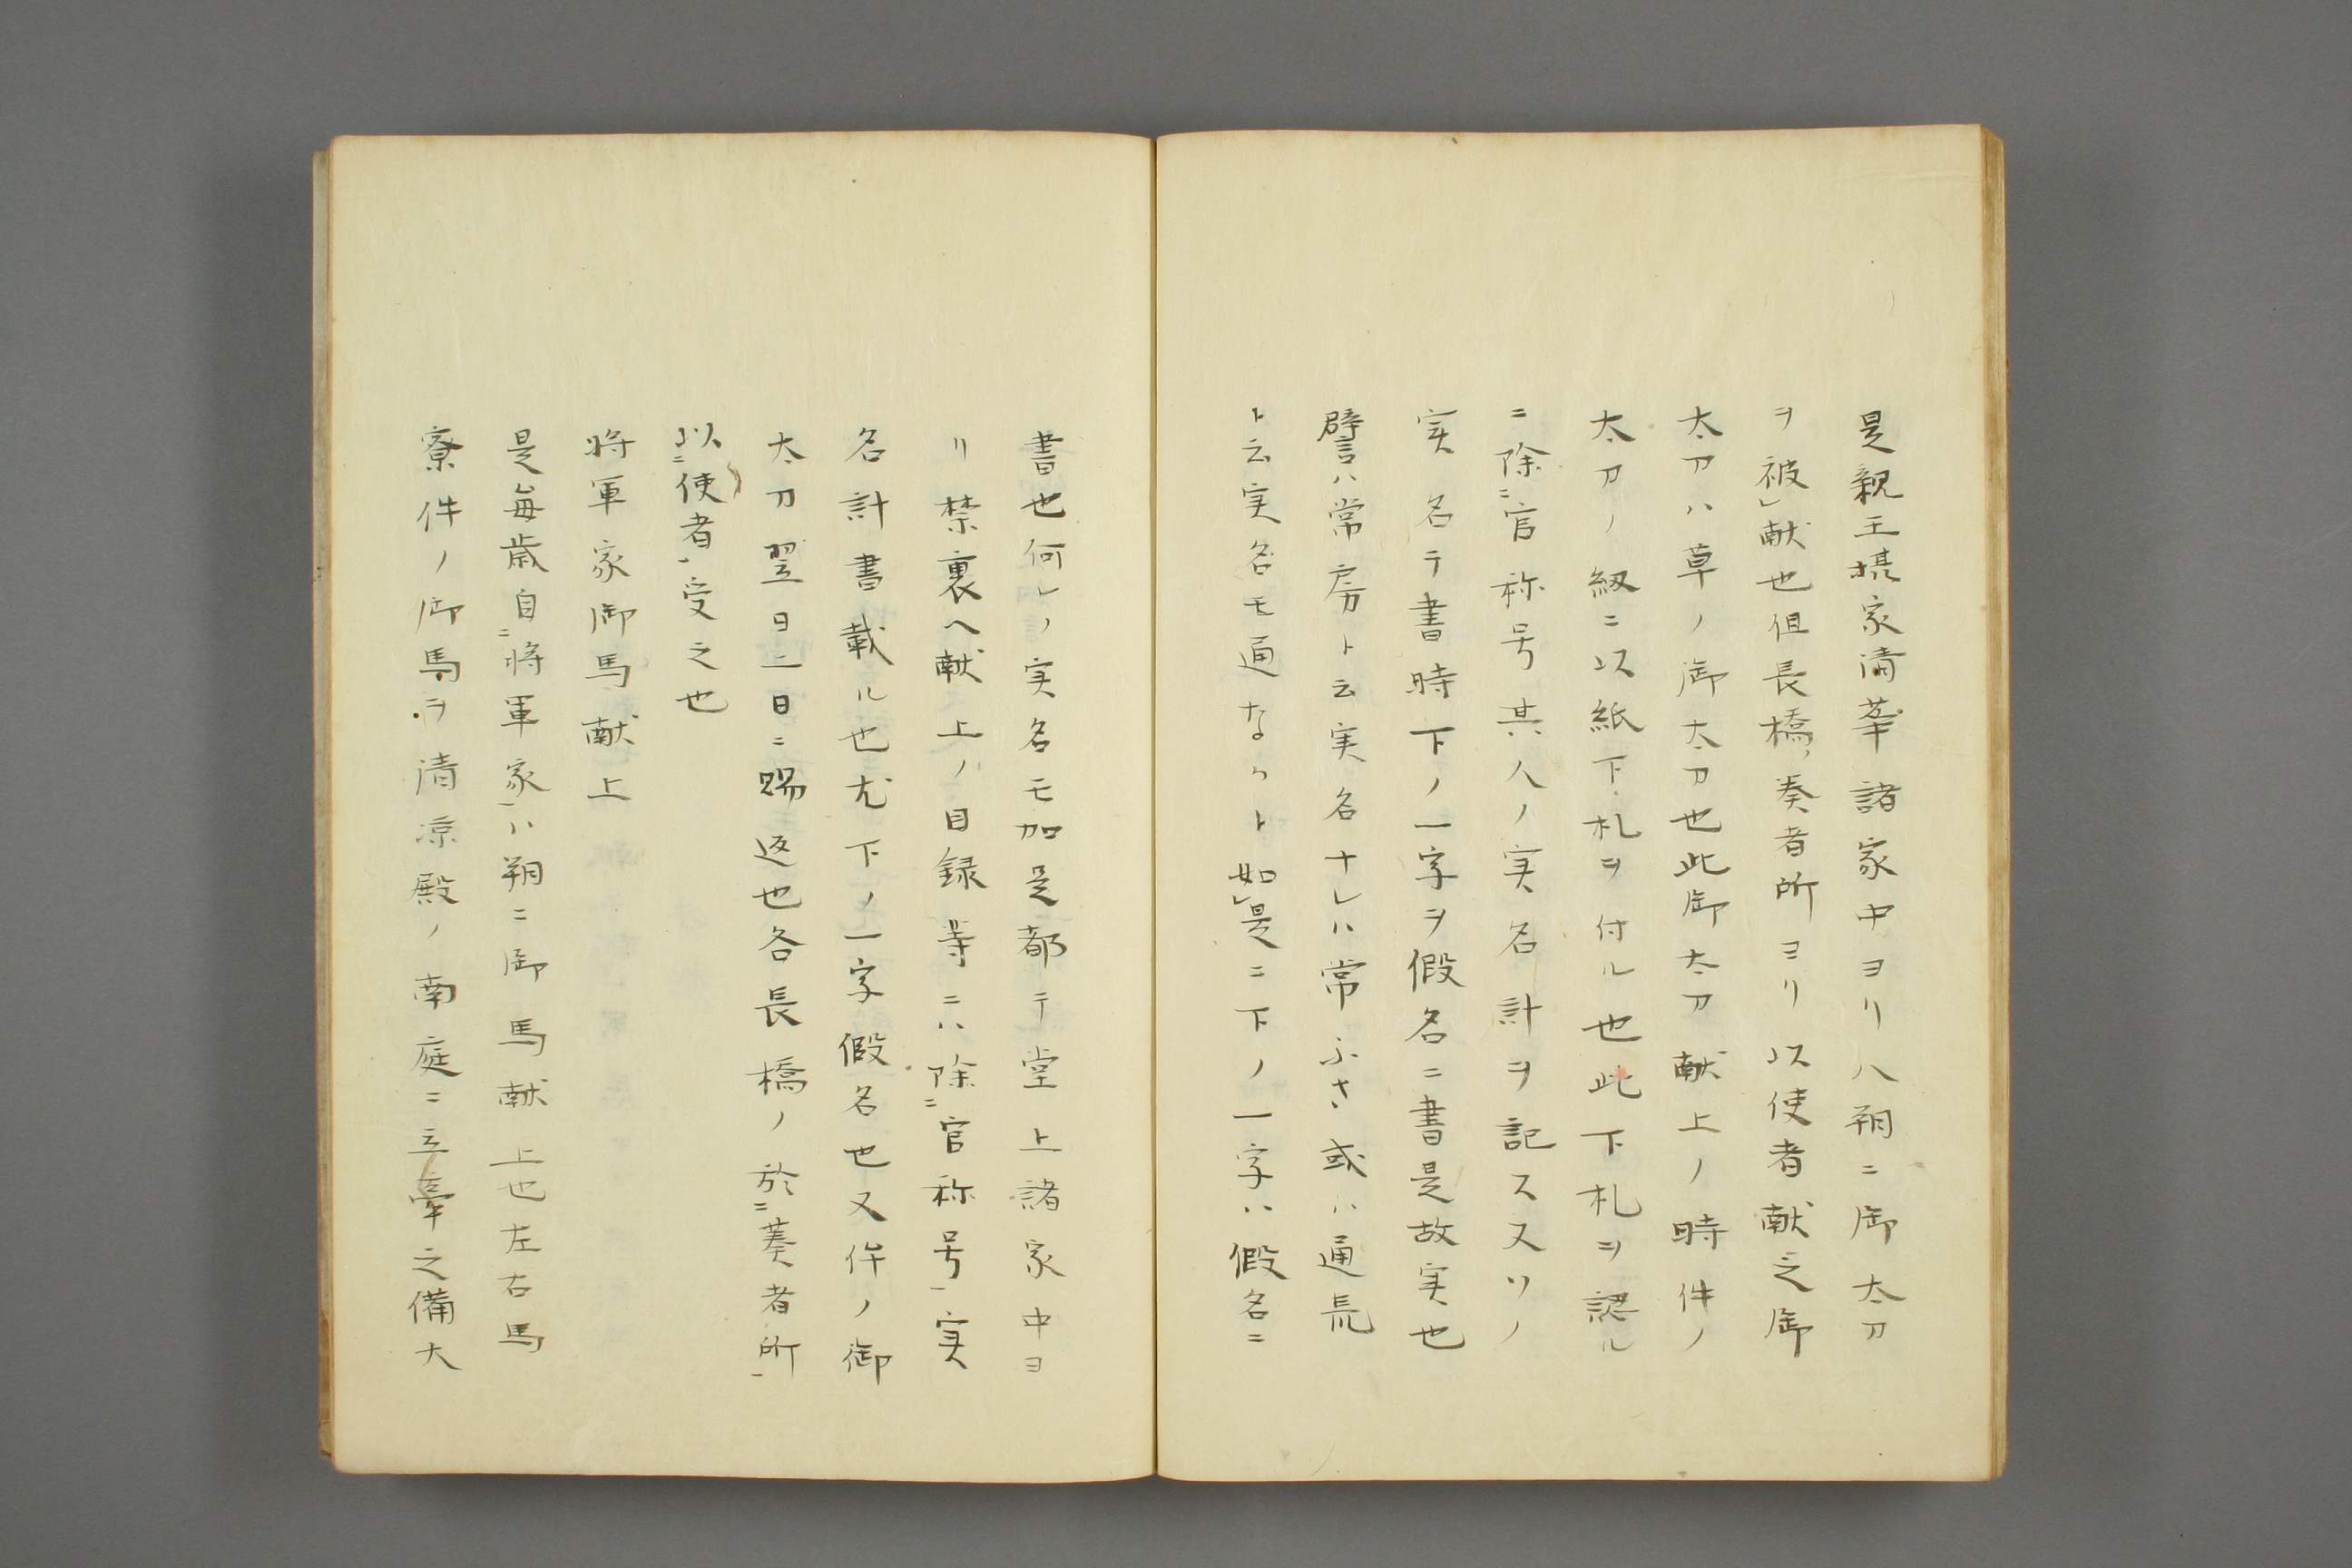 是親王摂家清華諸家中ヨリ八朔ニ御太刀
ヲ被レ献也但長橋ノ奏者所ヨリ以使者献之御
太刀ハ草ノ御太刀也此御太刀献上ノ時件ノ
太刀ノ級ニ以紙下札ヲ付ル也此下札ヲ認ル
ニ除二官称号其人ノ実名計ヲ記ス又ソノ
実名テ書時下ノ一字ヲ假名ニ書是故実也
譬ハ常房ト云実名ナレハ常ふさ或ハ通長
ト云実名モ通なかト如レ是ニ下ノ一字ハ假名ニ
書也何レノ実名モ加是都テ堂上諸家中ヨ
リ禁裏ヘ献上ノ目録等ニハ除二官称号一実
名計書載ル也尤下ノ一字假名也又件ノ御
太刀翌日二日ニ賜返也各長橋ノ於二蓁者所一
以二使者一受之也
将軍家御馬献上
是毎歳自二将軍家一八朔ニ御馬献上也左右馬
寮件ノ御馬ヲ清凉殿ノ南庭ニ立牽之備大